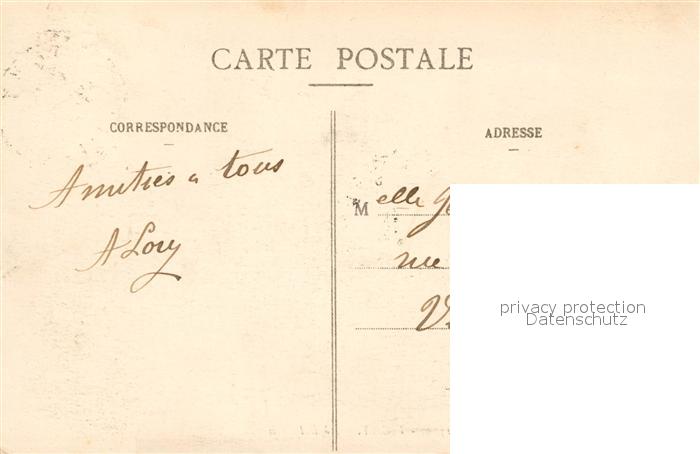 CARTE POSTALE
CORRESPONDANCE
ADRESSE
Amitiés a tous
A Lory
Melle
rue
privacy protection
Datenschutz